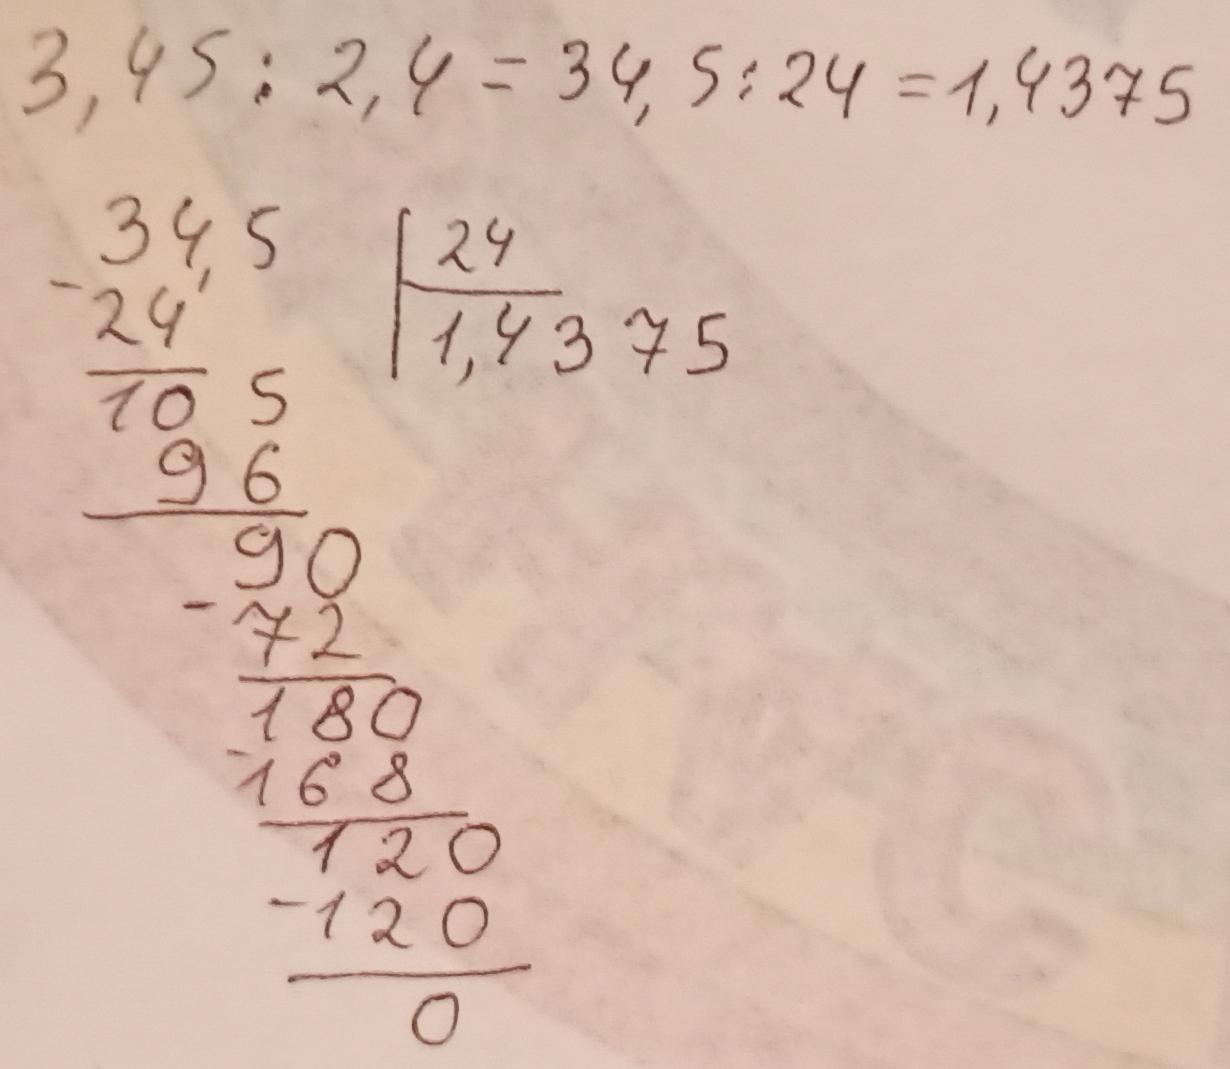 3,45 : 2,4 = 34,5 : 24 = 1,4375
34,5 | 24
- 24 | 1,4375
10 5
9 6
90
- 72
180
- 168
120
- 120
0